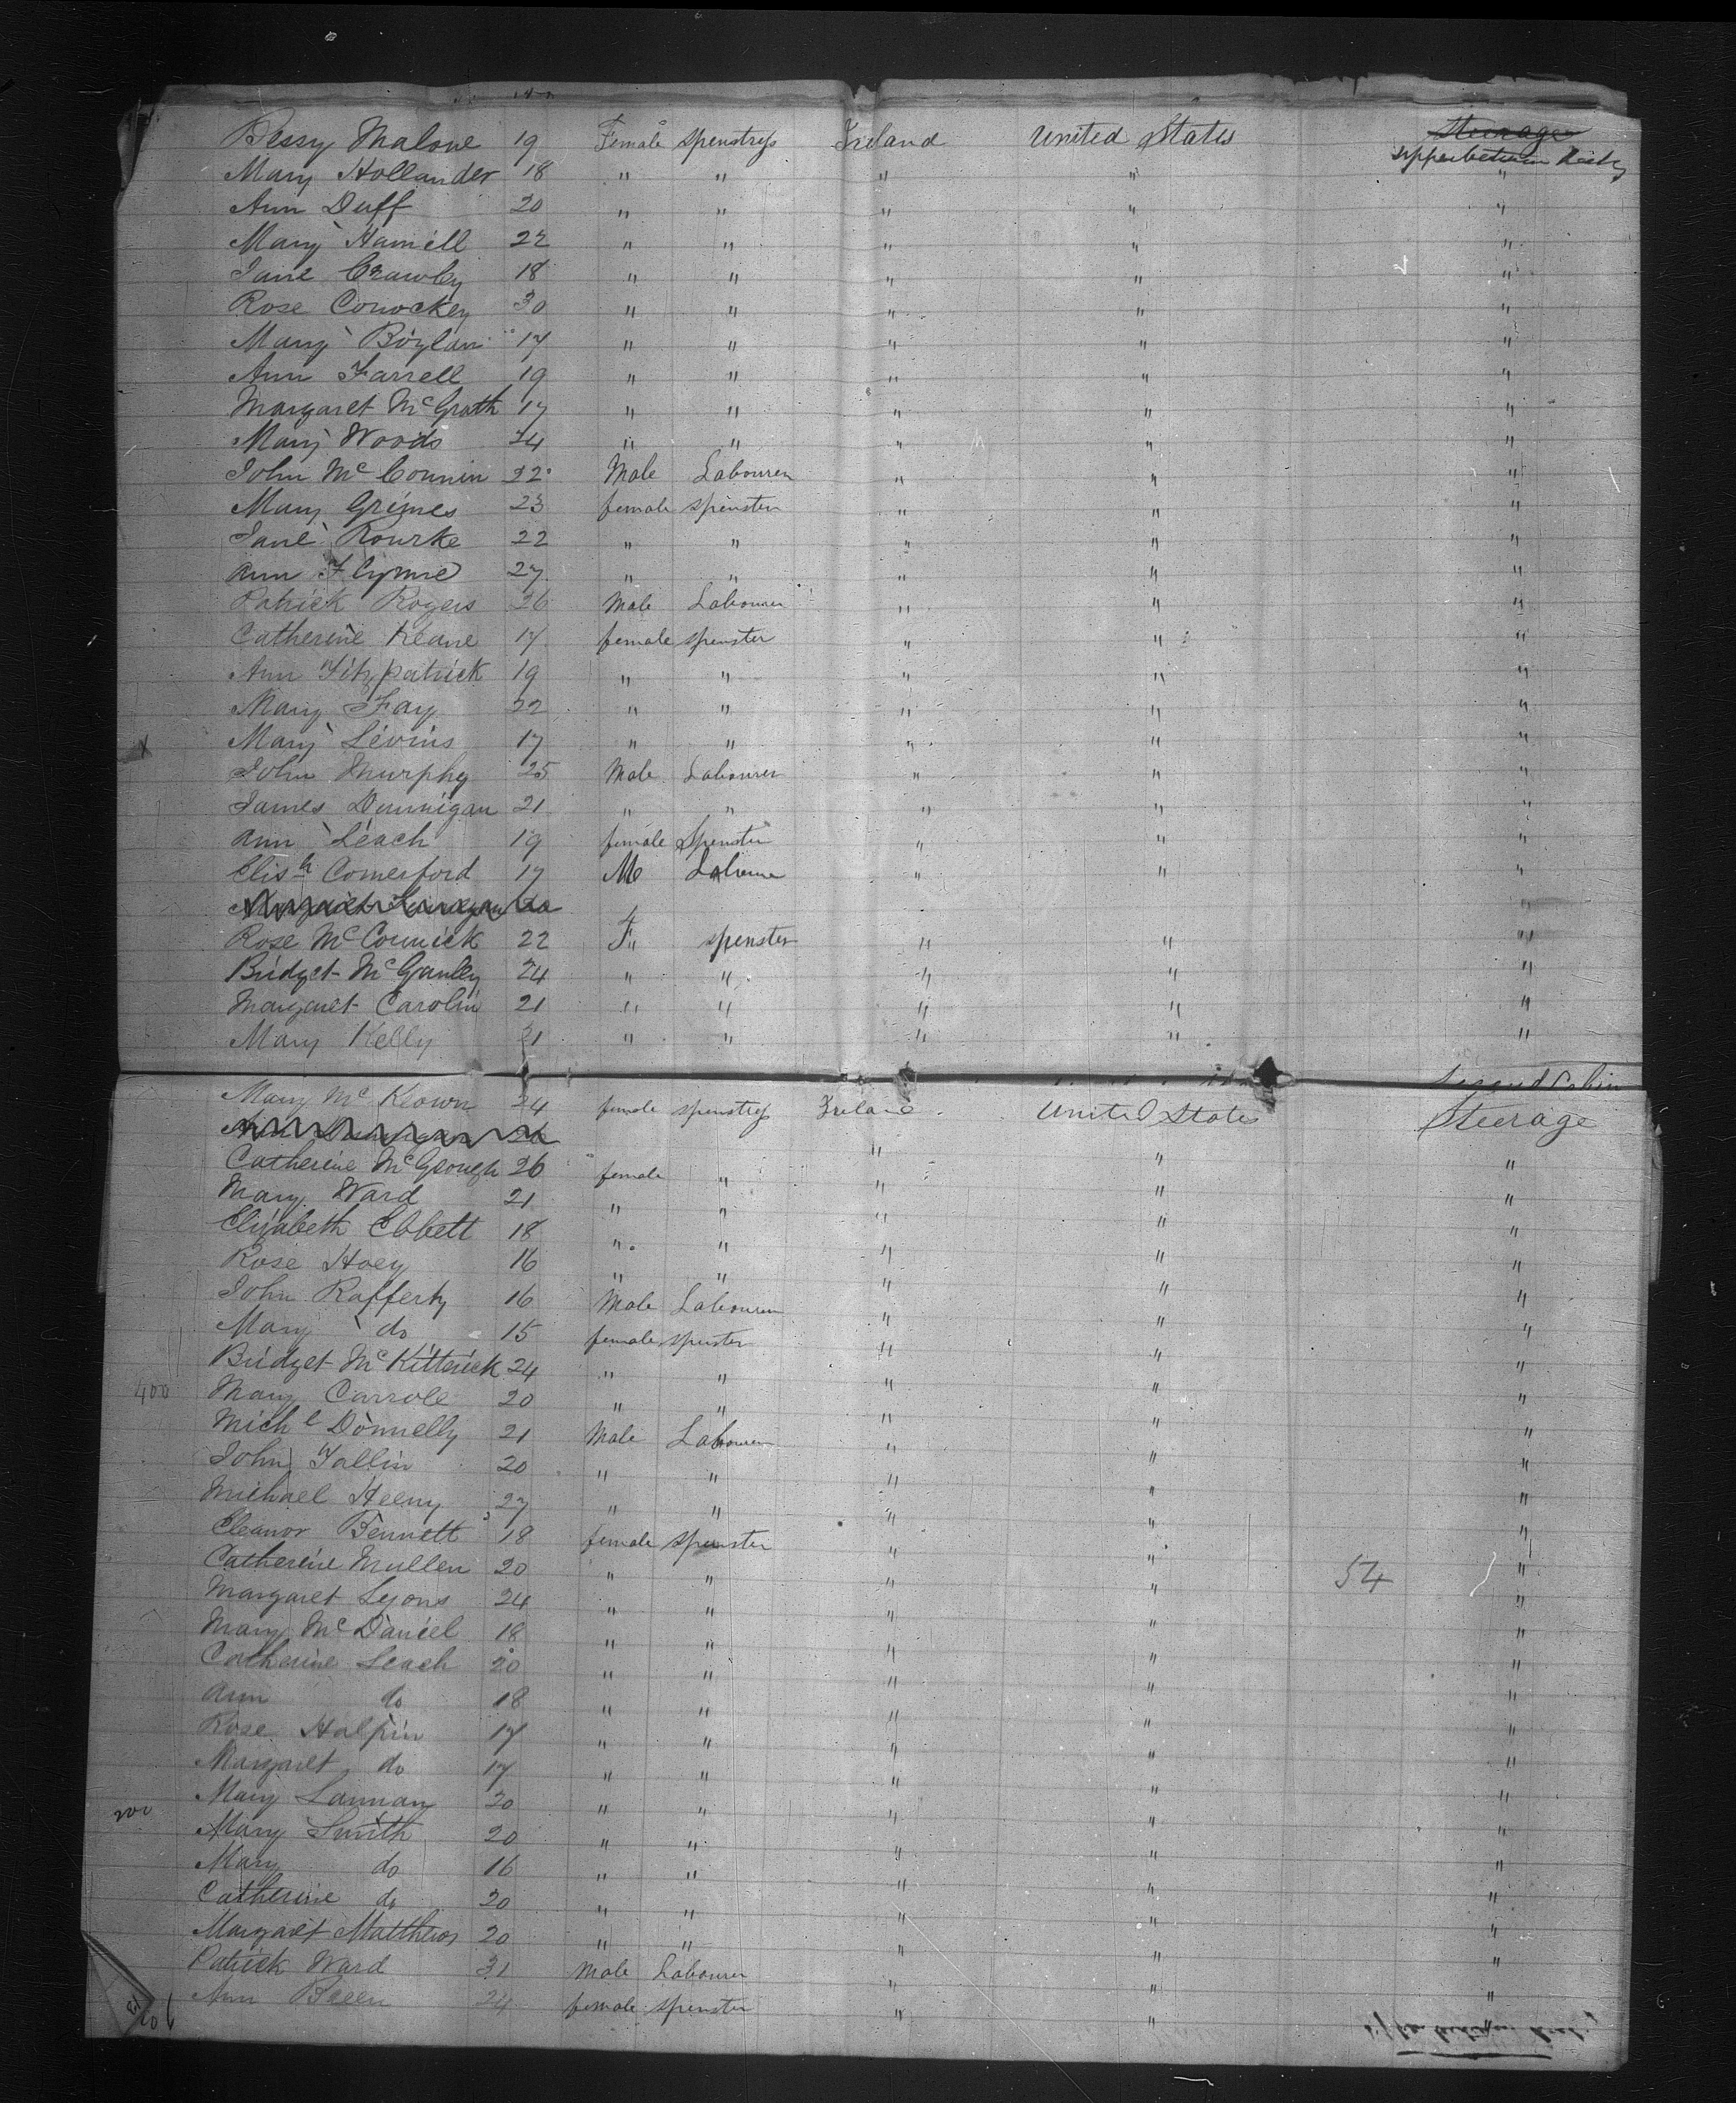 Bessy Malone 19 Female spenstress Ireland United States Steerage
upper between decks
Mary Hollander 18 " " " " "
Ann Duff 20 " " " " "
Mary Hamill 22 " " " " "
Jane Crawley 18 " " " " "
Rose Conockey 30 " " " " "
Mary Boylan 17 " " " " "
Ann Farrell 19 " " " " "
Margaret McGrath 17 " " " " "
Mary Woods 24 " " " " "
John McConnin 22 Male Labourer " " "
Mary Grimes 23 female spenster " " "
Jane Rourke 22 " " " " "
Ann Flynne 27 " " " " "
Patrick Rogers 26 Male Labourer " " "
Catherine Keane 17 female spenster " " "
Ann Fitzpatrick 19 " " " " "
Mary Fay 22 " " " " "
X Mary Levins 17 " " " " "
John Murphy 25 Male Labourer " " "
James Dunnigan 21 " " " " "
Ann Leach 19 female Spenster " " "
Elish Comerford 17 Me Labourer " " "
Margaret "
Rose McCormick 22 F" spenster " " "
Bridget McGanley 24 " " " " "
Margaret Carolin 21 " " " " "
Mary Kelly 21 " " " " "
Second Cabin
Mary McKeown 24 female spenstress Ireland United States Steerage
Ann 26 " " "
Catherine McGeough 26 female " " " "
Mary Ward 21 " " " " "
Elizabeth Ebbett 18 " " " " "
Rose Hoey 16 " " " " "
John Rafferty 16 Male Labourer " " "
Mary do 15 female spenster " " "
Bridget McKitterick 24 " " " " "
400 Mary Carroll 20 " " " " "
Michl Donnelly 21 Male Labourer " " "
John Tallin 20 " " " " "
Michael Heeny 27 " " " " "
Eleanor Bennett 18 female spenster " " "
Catherine Mullen 20 " " " " 54 "
Margaret Lyons 24 " " " " "
Mary McDaniel 18 " " " " "
Catherine Leach 20 " " " " "
Ann do 18 " " " " "
Rose Halpin 17 " " " " "
Margaret do 17 " " " " "
Mary Lannan 20 " " " " "
200 Mary Smith 20 " " " " "
Mary do 16 " " " " "
Catherine do 20 " " " " "
Margaret Matthews 20 " " " " "
Patrick Ward 31 Male Labourer " " "
Ann Breen 24 female spenster " "